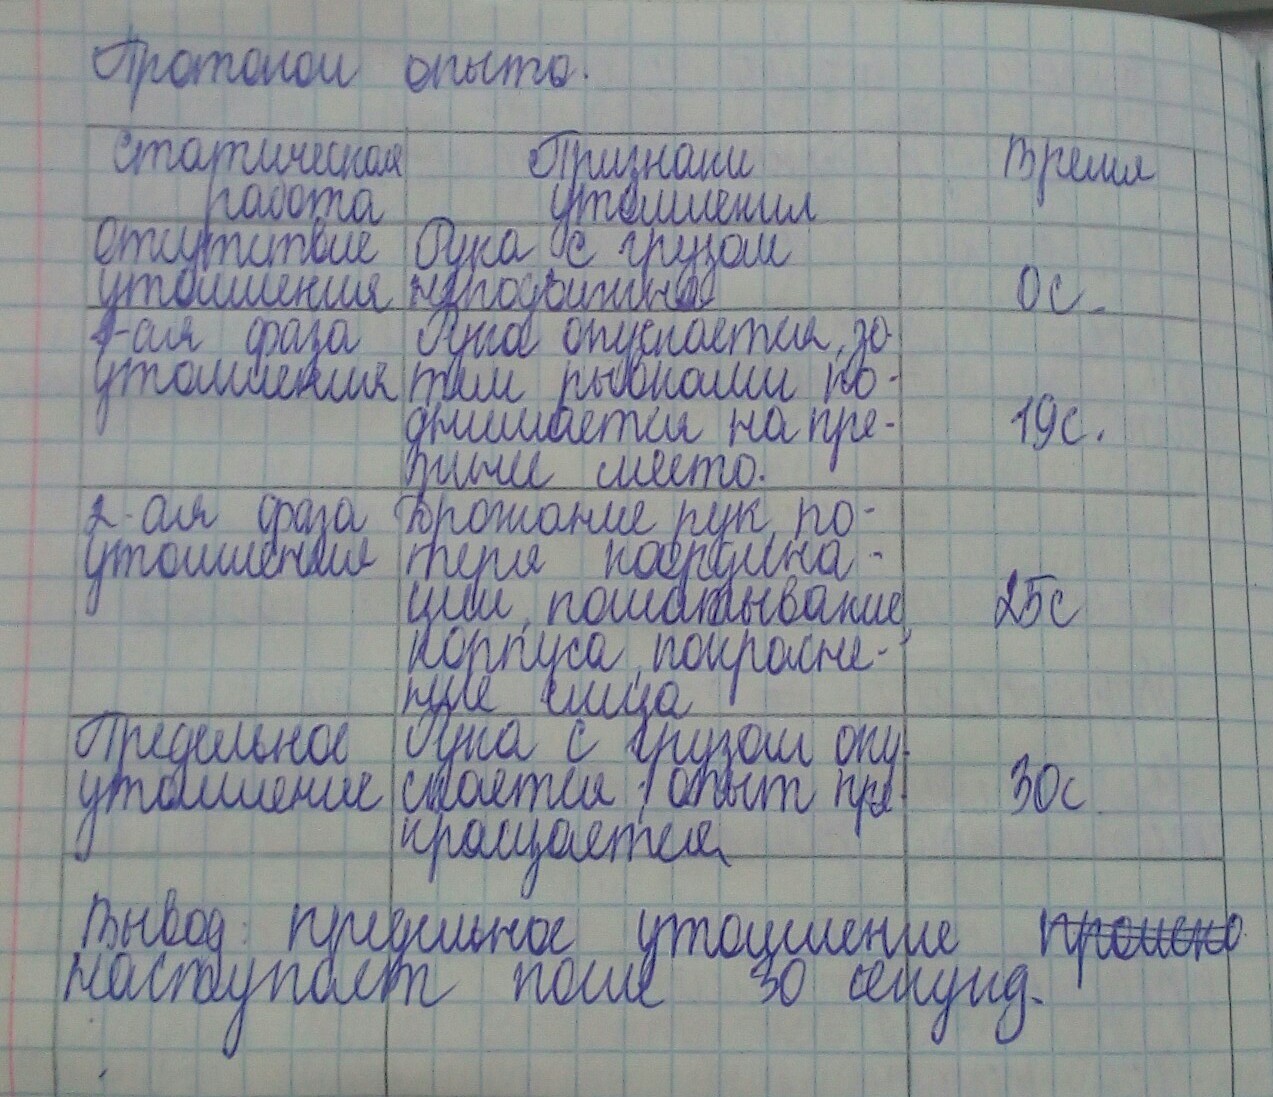 Протокол опыта.
Статическая работа
Признаки утомления
Время
Отсутствие утомления
Рука с грузом
неподвижна
0с.
1-ая фаза
утомления
Рука опускается, за-
тем рывками по-
днимается на пре-
жнее место.
19с.
2-ая фаза
утомления
Дрожание рук, по-
теря координа-
ции, пошатывание
корпуса, покрасне-
ние лица
25с
Предельное
утомление
Рука с грузом опу-
скается; опыт пре-
кращается
30с
Вывод: предельное утомление
наступает после 30 секунд.